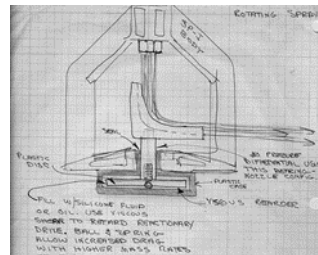 ROTATING SPRAY
SP-1
BODY
SEAL
PLASTIC
DISC
NO PRESSURE
DIFFERENTIAL USING
THIS BEARING -
NOZZLE CONFIG.
PLASTIC
CASE
VISCOUS RETARDER
FILL W/ SILICONE FLUID
OR OIL. USE VISCOUS
SHEAR TO RETARD REACTIONARY
DRIVE. BALL & SPRING
ALLOW INCREASED DRAG
WITH HIGHER GLASS RATES